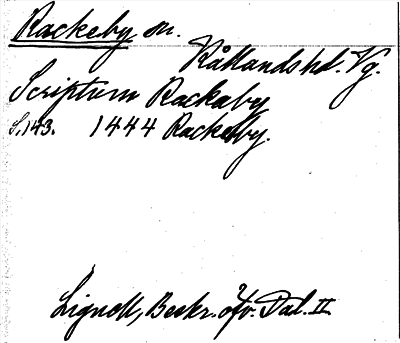 Rackeby sn.
Kållands hd. Vg.
Scriptum Rackaby
S. 143. 1444 Rackeby.
Lignell, Beskr. öfv. Dal. II